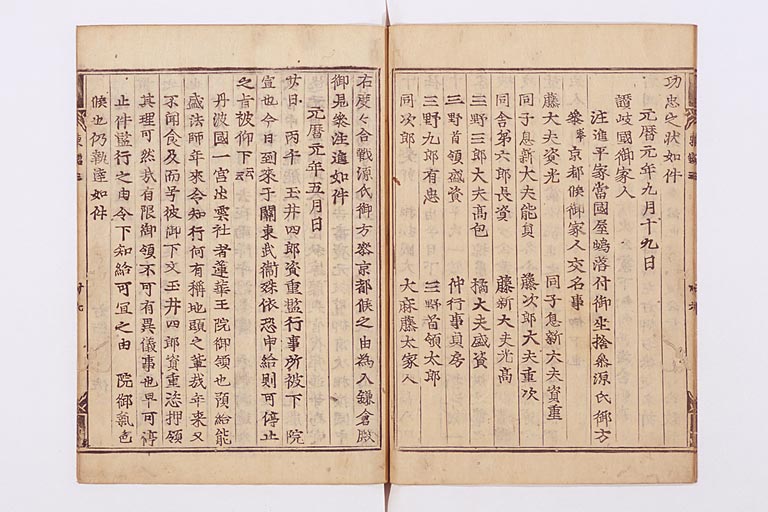 功忠之状如件
元暦元年九月十九日
讃岐國御家人
注進平家當國屋嶋落付御坐捨參源氏御方
參京都候御家人交名事
藤大夫資光
同子息新大夫資重
同子息新大夫能員
藤次郎大夫重次
同舎第六郎長資
藤新大夫光高
三野三郎大夫高包
橘大夫盛資
三野首領盛資
仲行事貞房
三野九郎有忠
三野首領太郎
同次郎
大麻藤太家人
右度々合戰源氏御方參京都候之由為入鎌倉殿
御見參注進如件
元暦元年五月日
廿日 丙午 玉井四郎資重濫行事所被下 院
宣也今日到來于關東武衛殊依恐申給則可停止
之旨被仰下云云
丹波國一宮出雲社者蓮華王院御領也預給能
盛法師年來令知行何有稱地頭之輩哉年來又
不聞食及而号彼御下文玉井四郎資重恣押領
其理可然哉有限御領不可有異儀事也早可停
止件濫行之由令下知給可宜之由 院御氣色
候也仍執達如件